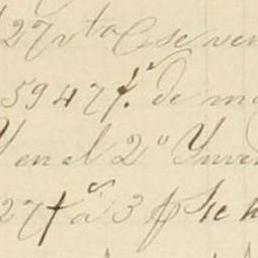 27 vta Se ven
5947 f. de
Y en el 2º Inven
27 f a 3 f Se h